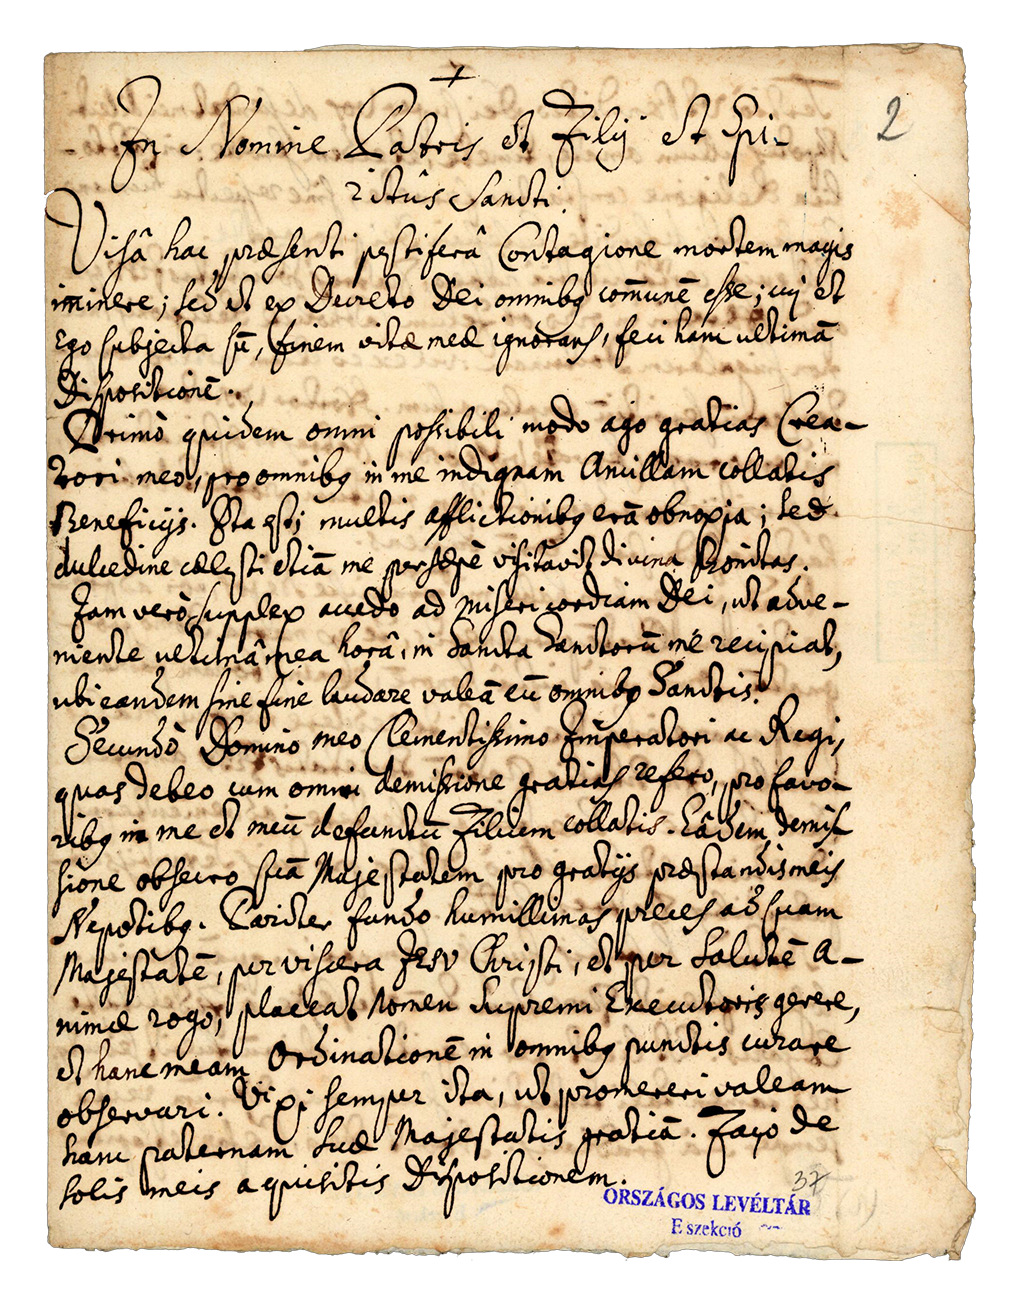 +
2
In Nomine Patris et Filij et Spi-
ritûs Sancti.
Visâ hac præsenti pestiferâ Contagione mortem magis
iminere; sed et ex Decreto Dei omnibq com̄unē esse; cuj et
Ego subjecta sū, finem vitæ meæ ignorans, feci hanc ultimā
Dispositionē.
Primò quidem omni possibili modo ago gratias Crea-
tori meo, pro omnibq in me indignam Ancillam collatis
Beneficijs. Ita qsi multis afflictionibq erā obnoxia; sed
dulcedine cælesti etiā me persæpè visitavit divina Bonitas.
Jam verò supplex accedo ad Misericordiam Dei, ut adve-
niente ultimâ mea horâ, in Sancta Sanctorū me recipiat,
ubi eandem sine fine laudare valeā cū omnibq Sanctis.
Secundò Domino meo Clementissimo Imperatori ac Regi,
quas debeo cum omni demissione gratias refero, pro favo-
ribq in me et meū defunctū Filium collatis. Eâdem demis-
sione obsecro suā Majestatem pro gratijs præstandis meis
Nepotibq. Pariter fundo humillimas preces ad suam
Majestatē, per viscera JESV Christi, et per Salutē A-
nimæ rogo, placeat Nomen Supremi Executoris gerere,
et hanc meam Ordinationē in omnibq punctis curare
observari. Vixi semper ita, ut promereri valeam
hanc paternam Suæ Majestatis gratiā. Facio de
solis meis aquisitis Dispositionem.
37
ORSZÁGOS LEVÉLTÁR
E szekció